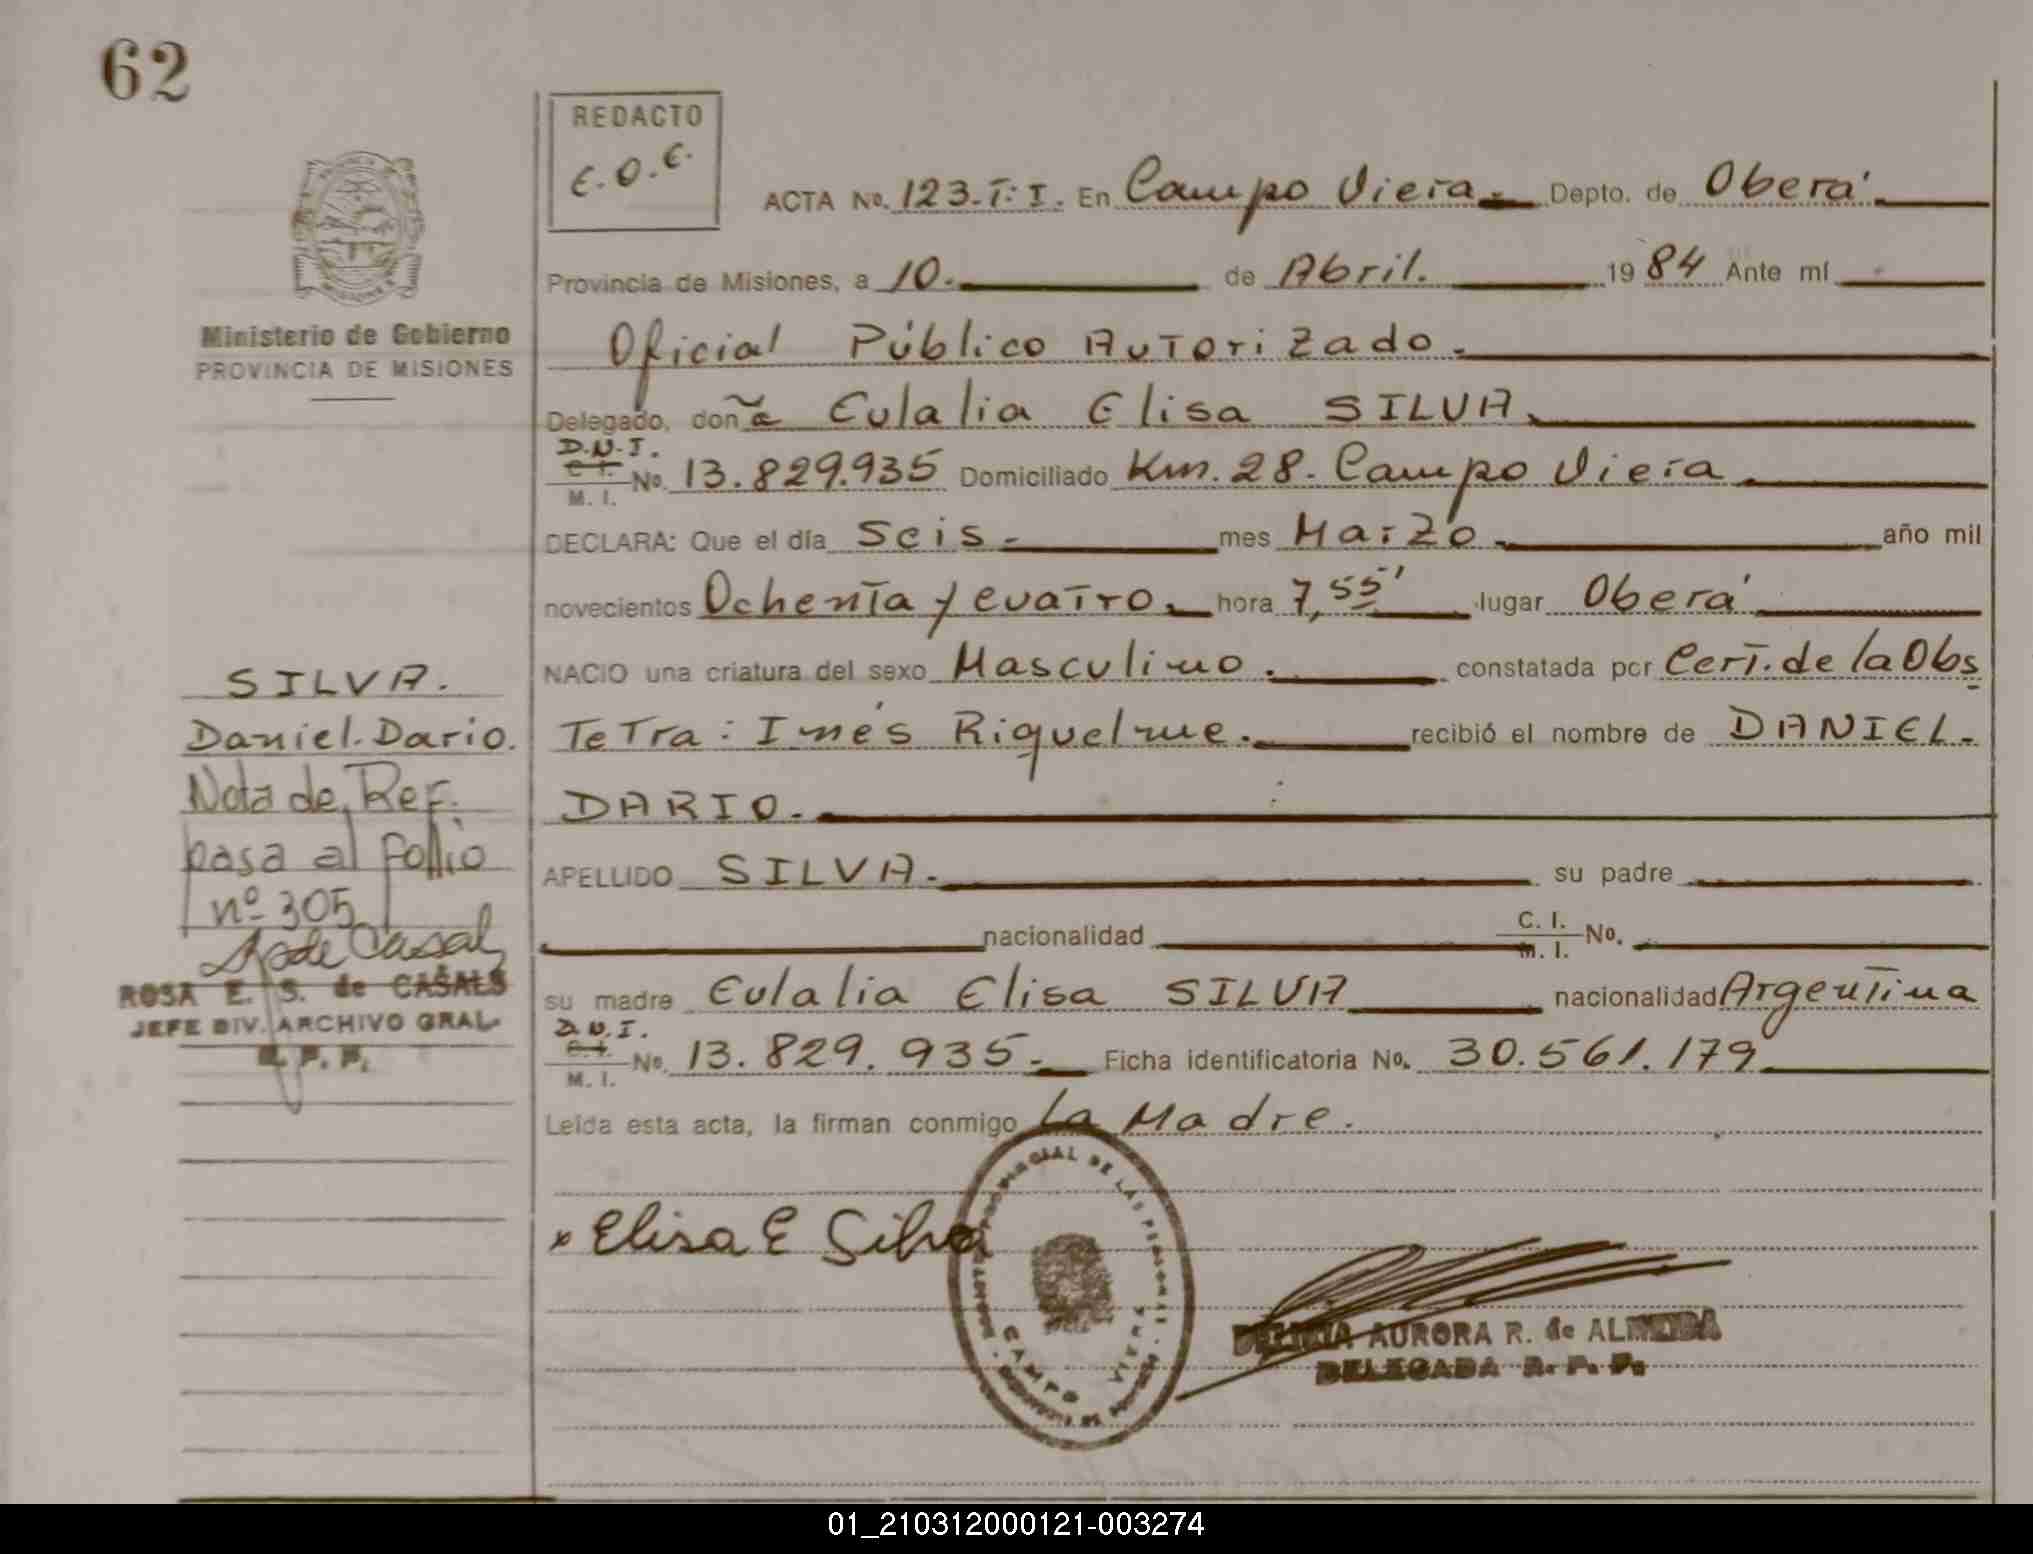 62
REDACTO
E.O.E.
ACTA No. 123.T:I. En Campo Viera. Depto. de Oberá
Provincia de Misiones, a 10. de Abril. 1984 Ante mí
Ministerio de Gobierno
PROVINCIA DE MISIONES
Oficial Público Autorizado.
Delegado, doña Eulalia Elisa SILVA.
D.N.I.
C.I.
M. I. No. 13.829.935 Domiciliado Km. 28. Campo Viera
DECLARA: Que el día Seis. mes Marzo. año mil
novecientos Ochenta y cuatro. hora 7,55' lugar Oberá
NACIO una criatura del sexo Masculino. constatada por Cert. de la Obs
tetra: Inés Riquelme. recibió el nombre de DANIEL.
DARIO.
APELLIDO SILVA. su padre
nacionalidad C. I.
M. I. No.
su madre Eulalia Elisa SILVA nacionalidad Argentina
D.N.I.
C.I.
M. I. No. 13.829.935. Ficha identificatoria No. 30.561.179
Leída esta acta, la firman conmigo la Madre.
SILVA.
Daniel Dario.
Nota de Ref.
pasa al follio
nº 305
ROSA E. S. de CASALS
JEFE DIV. ARCHIVO GRAL.
R. P. P.
x Elisa E Silva
PROVINCIAL DE LAS PERSONAS
CAMPO VIERA
AURORA R. de ALMEIDA
DELEGADA R. P. P.
01_210312000121-003274